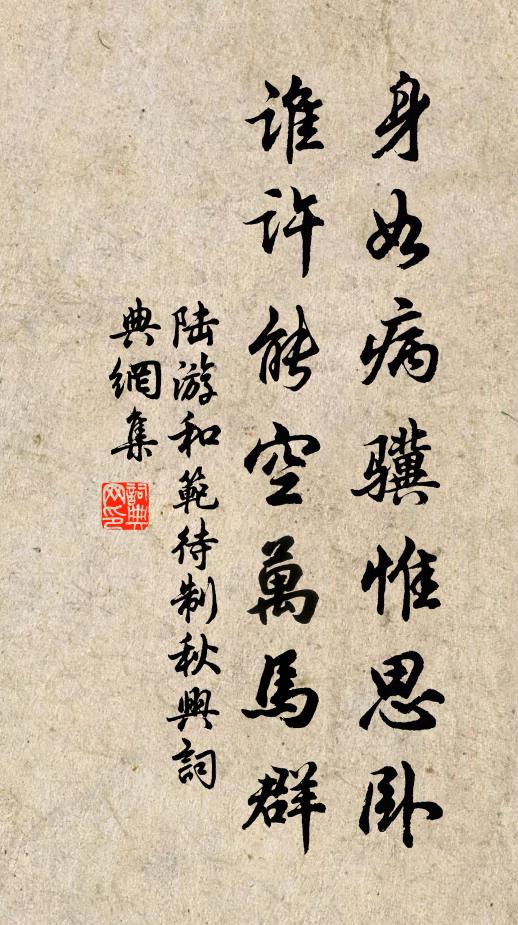 身如病驥惟思卧
誰許能空萬馬群
陸游和範待制秋興詞
典網集
詞典
网印